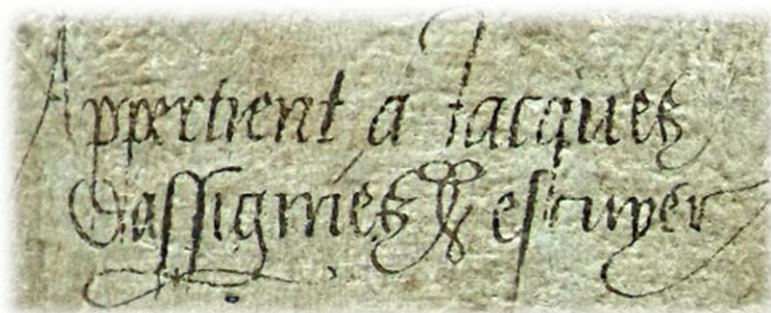 Appertient a Jacques
Dassignies escuyer